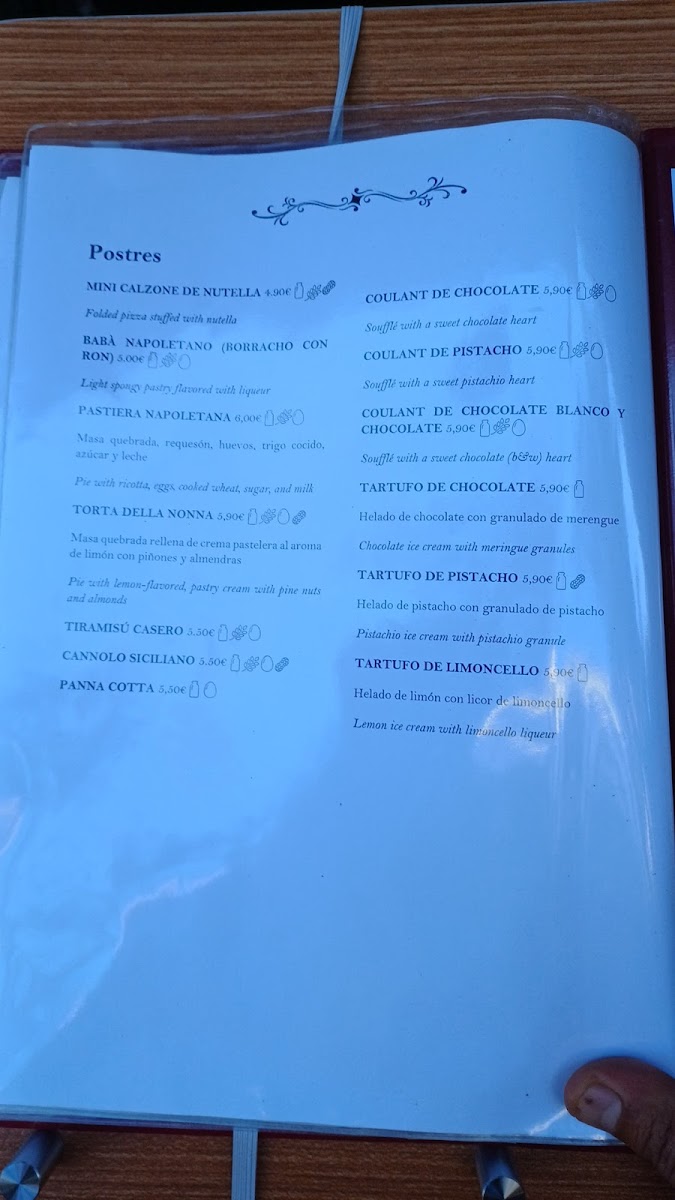 Postres
MINI CALZONE DE NUTELLA 4.90€
Folded pizza stuffed with nutella
BABÀ NAPOLETANO (BORRACHO CON
RON) 5.00€
Light spongy pastry flavored with liqueur
PASTIERA NAPOLETANA 6,00€
Masa quebrada, requesón, huevos, trigo cocido,
azúcar y leche
Pie with ricotta, eggs, cooked wheat, sugar, and milk
TORTA DELLA NONNA 5,90€
Masa quebrada rellena de crema pastelera al aroma
de limón con piñones y almendras
Pie with lemon-flavored, pastry cream with pine nuts
and almonds
TIRAMISÚ CASERO 5.50€
CANNOLO SICILIANO 5.50€
PANNA COTTA 5,50€
COULANT DE CHOCOLATE 5,90€
Soufflé with a sweet chocolate heart
COULANT DE PISTACHO 5,90€
Soufflé with a sweet pistachio heart
COULANT DE CHOCOLATE BLANCO Y
CHOCOLATE 5,90€
Soufflé with a sweet chocolate (b&w) heart
TARTUFO DE CHOCOLATE 5,90€
Helado de chocolate con granulado de merengue
Chocolate ice cream with meringue granules
TARTUFO DE PISTACHO 5,90€
Helado de pistacho con granulado de pistacho
Pistachio ice cream with pistachio granule
TARTUFO DE LIMONCELLO 5,90€
Helado de limón con licor de limoncello
Lemon ice cream with limoncello liqueur